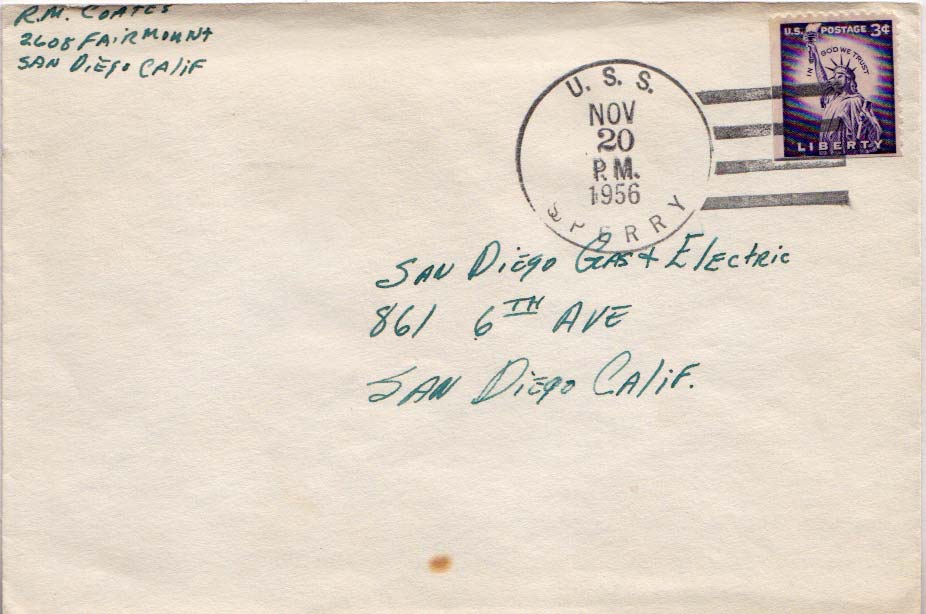 R.M. COATES
2608 FAIRMOUNT
SAN DIEGO CALIF
U.S. POSTAGE 3¢
IN GOD WE TRUST
LIBERTY
U. S. S.
NOV
20
P.M.
1956
SPERRY
SAN DIEGO GAS + ELECTRIC
861 6TH AVE
SAN DIEGO CALIF.